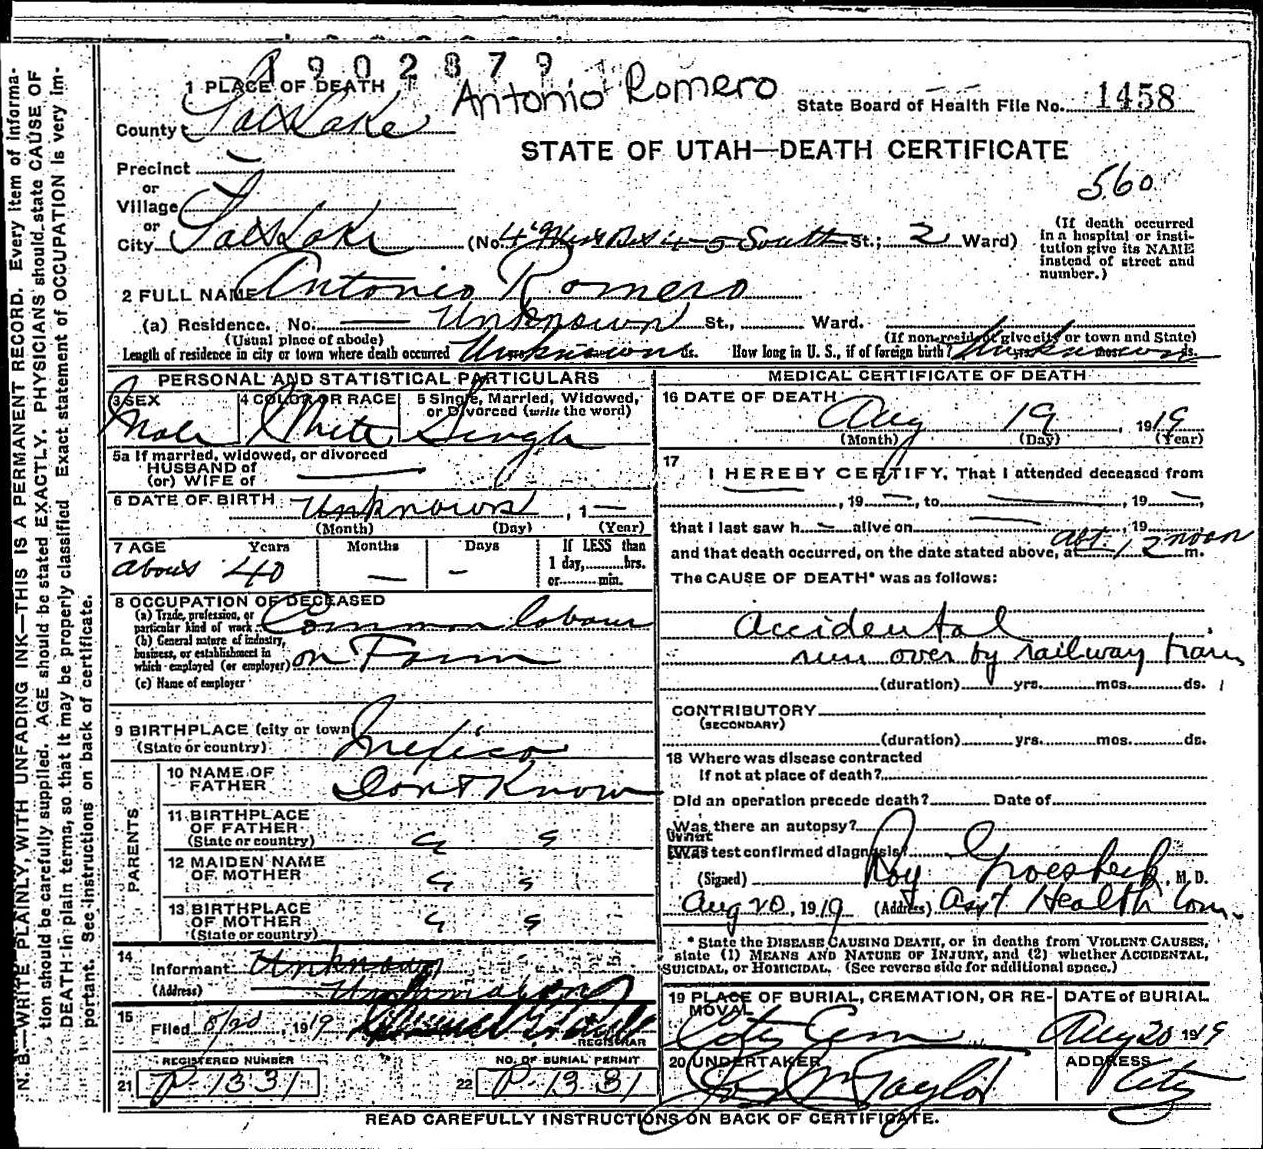 1902879
Antonio Romero
1 PLACE OF DEATH
State Board of Health File No. 1458
County Salt Lake
STATE OF UTAH—DEATH CERTIFICATE
Precinct
560
or
Village
or
City Salt Lake (No. 4th West Bet 4-5 South St.; 2 Ward)
(If death occurred in a hospital or institution give its NAME instead of street and number.)
2 FULL NAME Antonio Romero
(a) Residence. No. — Unknown St., Ward.
(Usual place of abode) (If non-resident give city or town and State)
Length of residence in city or town where death occurred Unknown ds. How long in U. S., if of foreign birth? Unknown ds.
PERSONAL AND STATISTICAL PARTICULARS
3 SEX Male
4 COLOR OR RACE White
5 Single, Married, Widowed, or Divorced (write the word) Single
5a If married, widowed, or divorced
HUSBAND of
(or) WIFE of
6 DATE OF BIRTH Unknown, 1—
(Month) (Day) (Year)
7 AGE Years Months Days If LESS than
about 40 — - 1 day,......hrs.
or......min.
8 OCCUPATION OF DECEASED
(a) Trade, profession, or particular kind of work Common labour
(b) General nature of industry, business, or establishment in which employed (or employer) on Farm
(c) Name of employer
9 BIRTHPLACE (city or town)
(State or country) Mexico
PARENTS
10 NAME OF FATHER Dont Know
11 BIRTHPLACE OF FATHER
(State or country)
12 MAIDEN NAME OF MOTHER
13 BIRTHPLACE OF MOTHER
(State or country)
14
Informant Unknown
(Address)
15
Filed 8/20, 1919
REGISTRAR
REGISTERED NUMBER NO. OF BURIAL PERMIT
21 P-1331 22 P-1331
MEDICAL CERTIFICATE OF DEATH
16 DATE OF DEATH Aug 19 1919
(Month) (Day) (Year)
17
I HEREBY CERTIFY, That I attended deceased from
, 19 , to , 19
that I last saw h alive on , 19
and that death occurred, on the date stated above, at abt. 12 noon m.
The CAUSE OF DEATH* was as follows:
Accidental
run over by railway train
(duration) yrs. mos. ds.
CONTRIBUTORY
(SECONDARY)
(duration) yrs. mos. ds.
18 Where was disease contracted
If not at place of death?
Did an operation precede death? Date of
Was there an autopsy?
What
Was test confirmed diagnosis?
(Signed) Roy Groesbeck, M. D.
Aug 20, 1919 (Address) Ass't Health Com.
* State the DISEASE CAUSING DEATH, or in deaths from VIOLENT CAUSES,
state (1) MEANS AND NATURE OF INJURY, and (2) whether ACCIDENTAL,
SUICIDAL, or HOMICIDAL. (See reverse side for additional space.)
19 PLACE OF BURIAL, CREMATION, OR REMOVAL DATE of BURIAL
City Cem Aug 20 1919
20 UNDERTAKER ADDRESS
Jos Wm Taylor City
READ CAREFULLY INSTRUCTIONS ON BACK OF CERTIFICATE.
N. B.—WRITE PLAINLY, WITH UNFADING INK—THIS IS A PERMANENT RECORD. Every item of informa-
tion should be carefully supplied. AGE should be stated EXACTLY. PHYSICIANS should state CAUSE OF
DEATH in plain terms, so that it may be properly classified. Exact statement of OCCUPATION is very im-
portant. See instructions on back of certificate.